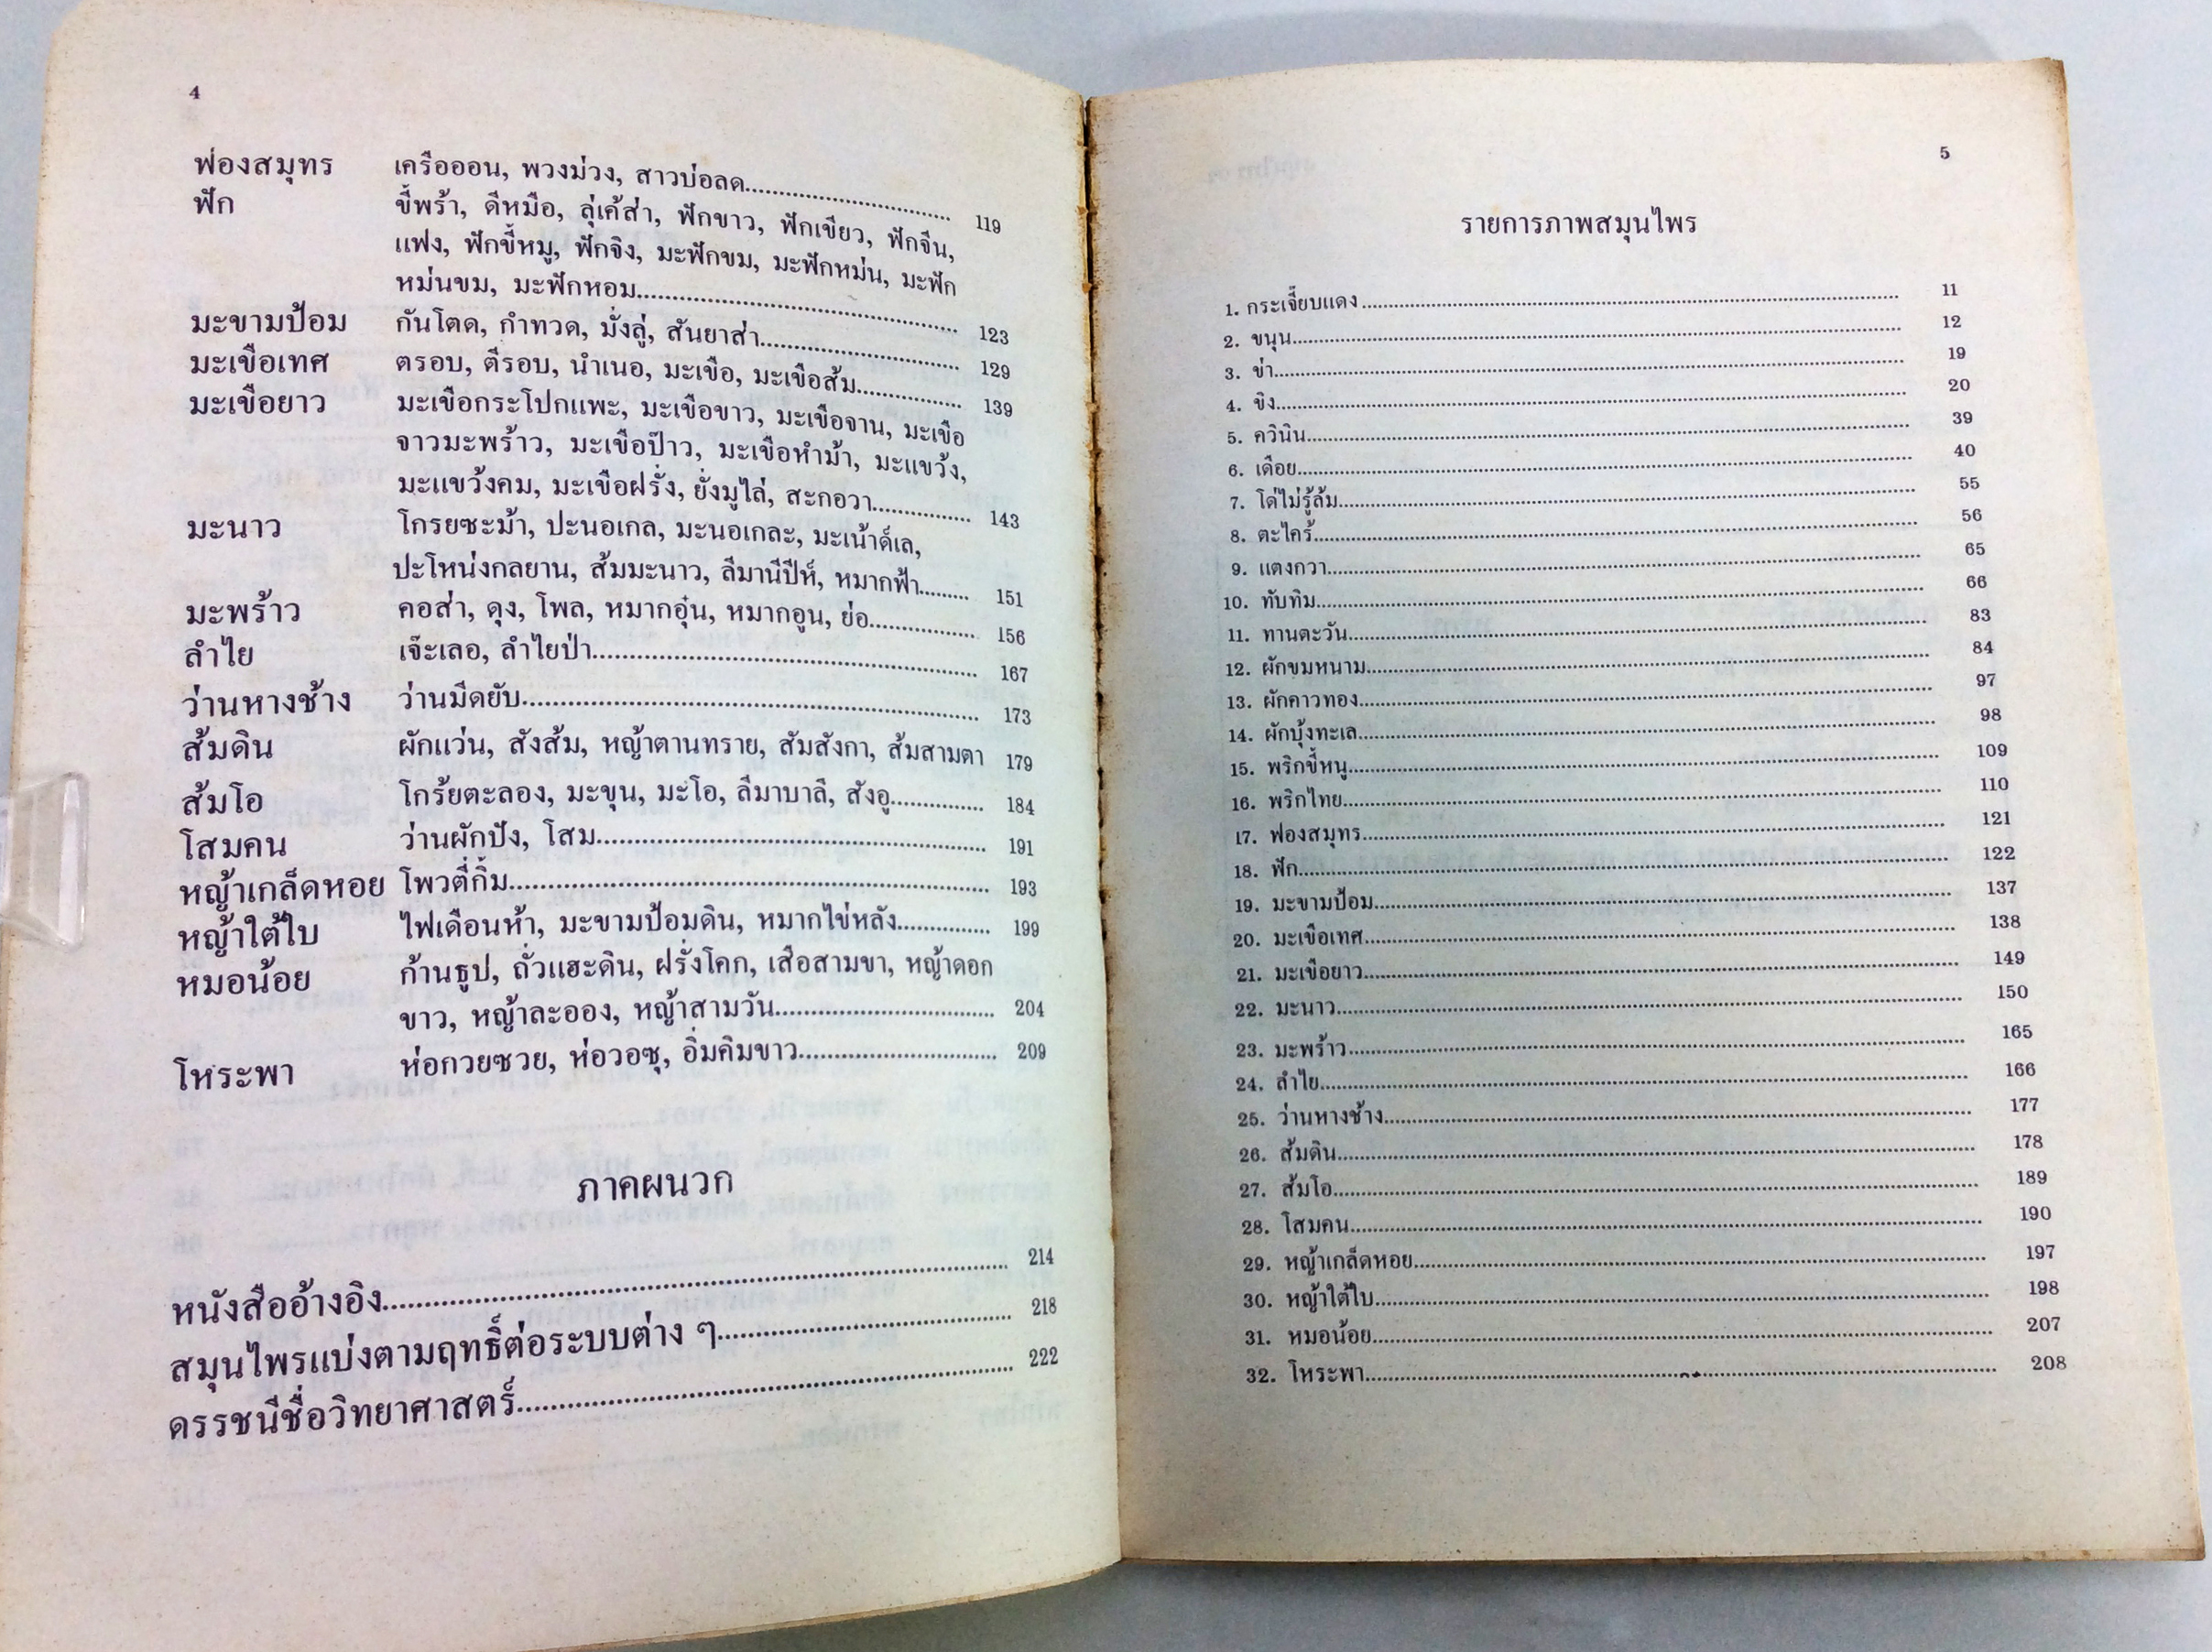 4
ฟองสมุทร เครือออน, พวงม่วง, สาวบ่อลด........................ 119
ฟัก ขี้พร้า, ดีหมือ, ลุ่เค้ส่า, ฟักขาว, ฟักเขียว, ฟักจีน,
แฟง, ฟักขี้หมู, ฟักจิง, มะฟักขม, มะฟักหม่น, มะฟัก
หม่นขม, มะฟักหอม........................ 123
มะขามป้อม กันโตด, กำทวด, มั่งลู่, สันยาส่า........................ 129
มะเขือเทศ ตรอบ, ตีรอบ, น้ำเนอ, มะเขือ, มะเขือส้ม............ 139
มะเขือยาว มะเขือกระโปกแพะ, มะเขือขาว, มะเขือจาน, มะเขือ
จาวมะพร้าว, มะเขือป๊าว, มะเขือหำม้า, มะแขว้ง,
มะแขว้งคม, มะเขือฝรั่ง, ยั่งมูไล่, สะกอวา............ 143
มะนาว โกรยซะม้า, ปะนอเกล, มะนอเกละ, มะเน้าด์เล,
ปะโหน่งกลยาน, ส้มมะนาว, ลีมานีปีห์, หมากฟ้า........ 151
มะพร้าว คอส่า, ดุง, โพล, หมากอุ๋น, หมากอูน, ย่อ............ 156
ลำไย เจ๊ะเลอ, ลำไยป่า........................ 167
ว่านหางช้าง ว่านมีดยับ........................ 173
ส้มดิน ผักแว่น, สังส้ม, หญ้าตานทราย, สัมสังกา, ส้มสามตา 179
ส้มโอ โกร้ยตะลอง, มะขุน, มะโอ, ลีมาบาลี, สังอู............ 184
โสมคน ว่านผักปัง, โสม........................ 191
หญ้าเกล็ดหอย โพวตี่กิ้ม........................ 193
หญ้าใต้ใบ ไฟเดือนห้า, มะขามป้อมดิน, หมากไข่หลัง............ 199
หมอน้อย ก้านธูป, ถั่วแฮะดิน, ฝรั่งโคก, เสือสามขา, หญ้าดอก
ขาว, หญ้าละออง, หญ้าสามวัน........................ 204
โหระพา ห่อกวยซวย, ห่อวอซุ, อิ่มคิมขาว........................ 209
ภาคผนวก
หนังสืออ้างอิง........................ 214
สมุนไพรแบ่งตามฤทธิ์ต่อระบบต่าง ๆ........................ 218
ดรรชนีชื่อวิทยาศาสตร์........................ 222
5
รายการภาพสมุนไพร
1. กระเจี๊ยบแดง........................ 11
2. ขนุน........................ 12
3. ข่า........................ 19
4. ขิง........................ 20
5. ควินิน........................ 39
6. เดือย........................ 40
7. โด่ไม่รู้ล้ม........................ 55
8. ตะไคร้........................ 56
9. แตงกวา........................ 65
10. ทับทิม........................ 66
11. ทานตะวัน........................ 83
12. ผักขมหนาม........................ 84
13. ผักคาวทอง........................ 97
14. ผักบุ้งทะเล........................ 98
15. พริกขี้หนู........................ 109
16. พริกไทย........................ 110
17. ฟองสมุทร........................ 121
18. ฟัก........................ 122
19. มะขามป้อม........................ 137
20. มะเขือเทศ........................ 138
21. มะเขือยาว........................ 149
22. มะนาว........................ 150
23. มะพร้าว........................ 165
24. ลำไย........................ 166
25. ว่านหางช้าง........................ 177
26. ส้มดิน........................ 178
27. ส้มโอ........................ 189
28. โสมคน........................ 190
29. หญ้าเกล็ดหอย........................ 197
30. หญ้าใต้ใบ........................ 198
31. หมอน้อย........................ 207
32. โหระพา........................ 208